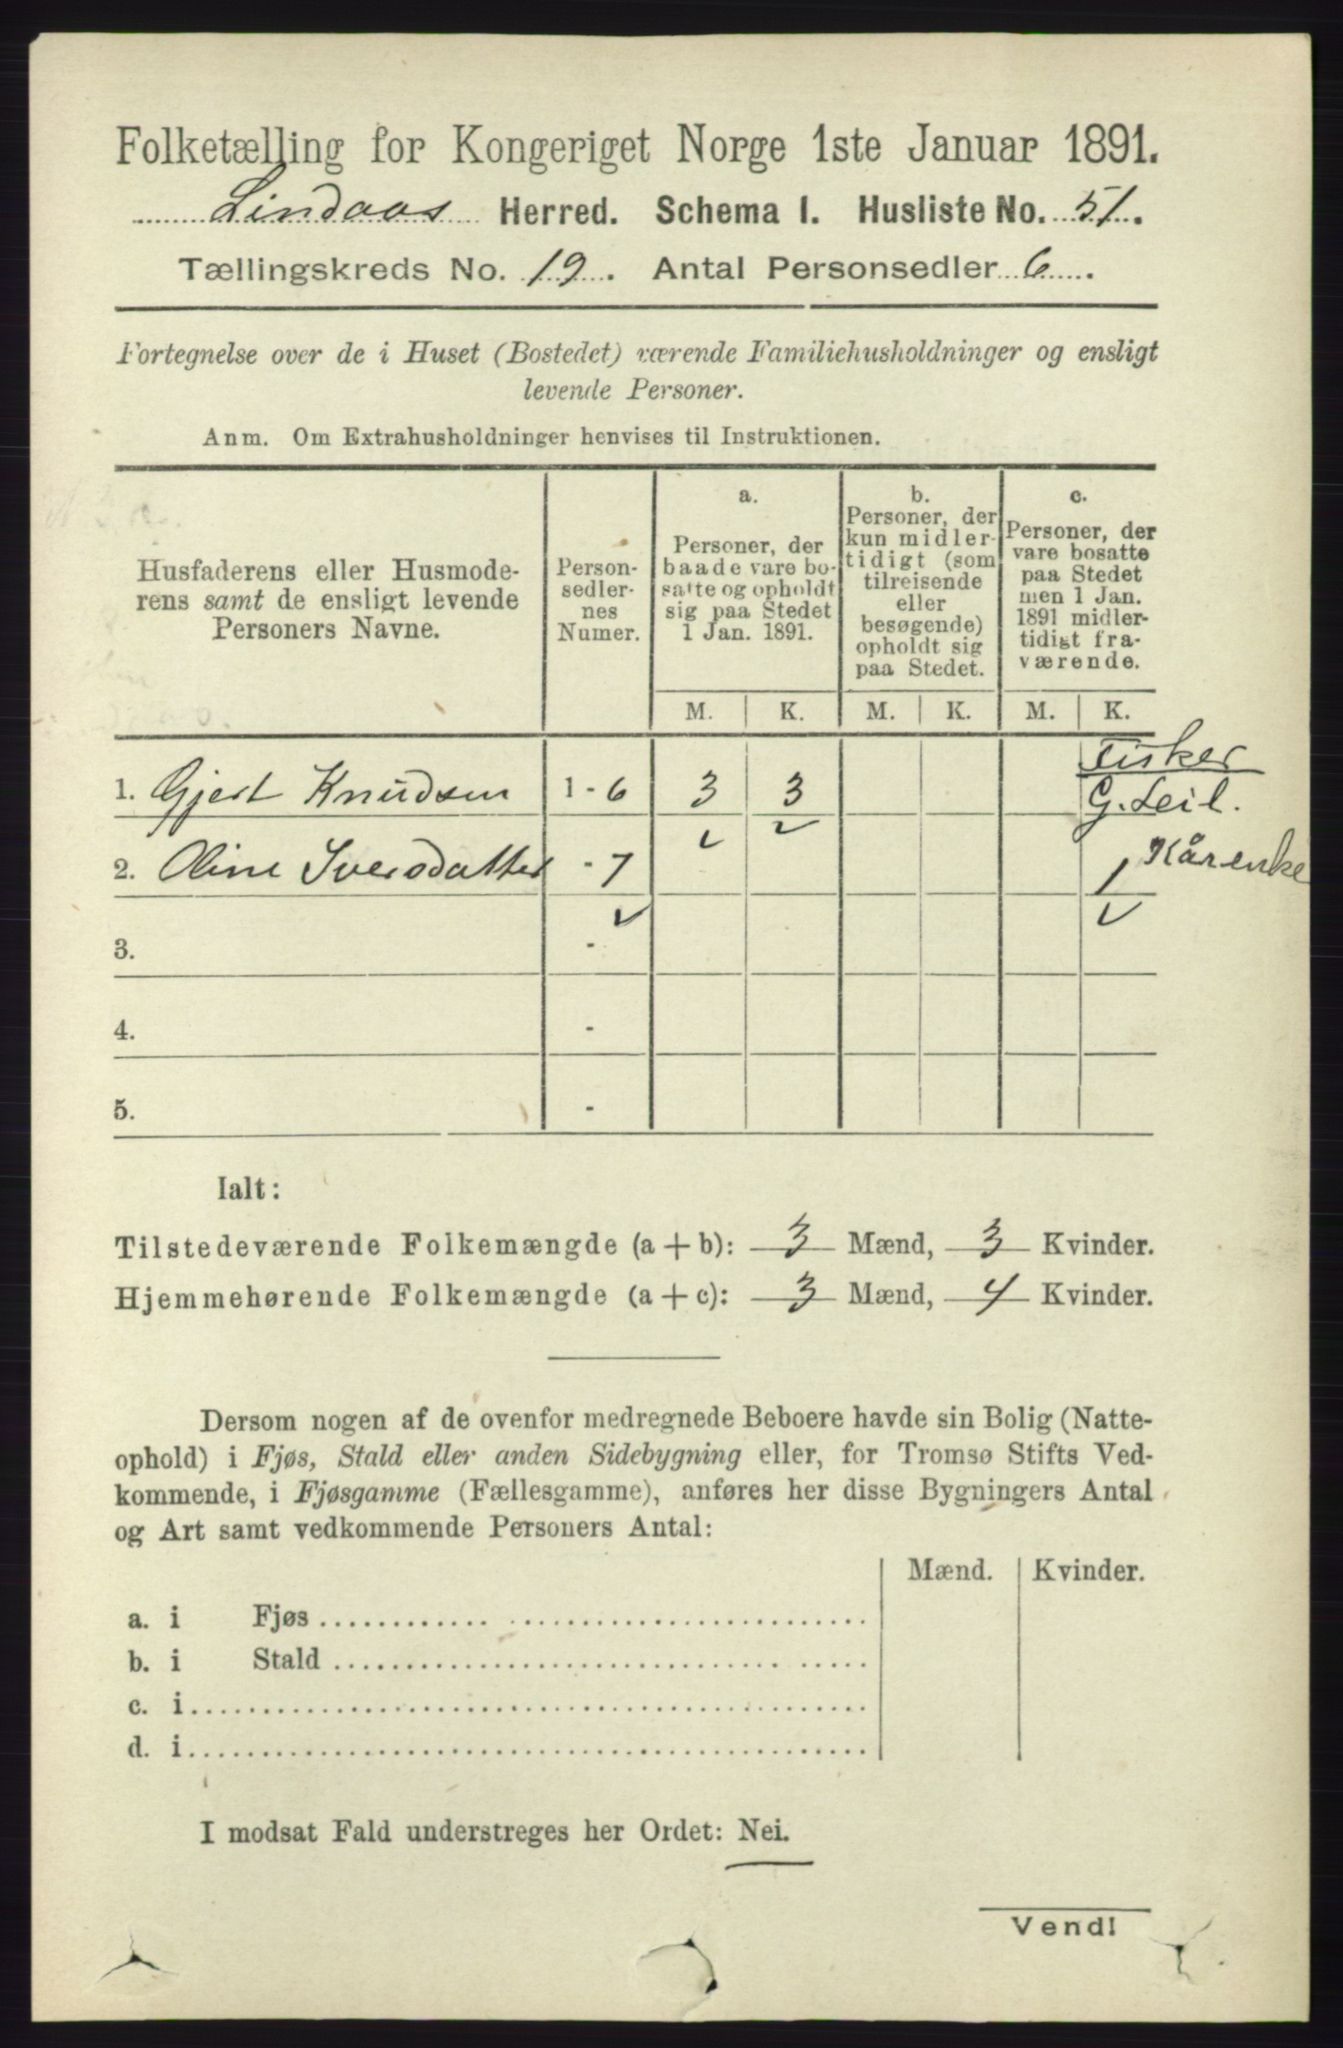 Folketælling for Kongeriget Norge 1ste Januar 1891.
Lindaas Herred. Schema I. Husliste No. 51.
Tællingskreds No. 19. Antal Personsedler 6.
Fortegnelse over de i Huset (Bostedet) værende Familiehusholdninger og ensligt
levende Personer.
Anm. Om Extrahusholdninger henvises til Instruktionen.
Husfaderens eller Husmode-
rens samt de ensligt levende
Personers Navne.
Person-
sedler-
nes
Numer.
a.
Personer, der
baade vare bo-
satte og opholdt
sig paa Stedet
1 Jan. 1891.
b.
Personer, der
kun midler-
tidigt (som
tilreisende
eller
besøgende)
opholdt sig
paa Stedet.
c.
Personer, der
vare bosatte
paa Stedet
men 1 Jan.
1891 midler-
tidigt fra-
værende.
M. K. M. K. M. K.
Fisker
1. Gjert Knudsen 1 - 6 3 3 G. Leil.
2. Oline Iversdatter - 7 1 Kårenke
3. -
4. -
5. -
Ialt:
Tilstedeværende Folkemængde (a + b): 3 Mænd, 3 Kvinder.
Hjemmehørende Folkemængde (a + c): 3 Mænd, 4 Kvinder.
Dersom nogen af de ovenfor medregnede Beboere havde sin Bolig (Natte-
ophold) i Fjøs, Stald eller anden Sidebygning eller, for Tromsø Stifts Ved-
kommende, i Fjøsgamme (Fællesgamme), anføres her disse Bygningers Antal
og Art samt vedkommende Personers Antal:
Mænd. Kvinder.
a. i Fjøs
b. i Stald
c. i
d. i
I modsat Fald understreges her Ordet: Nei.
Vend!